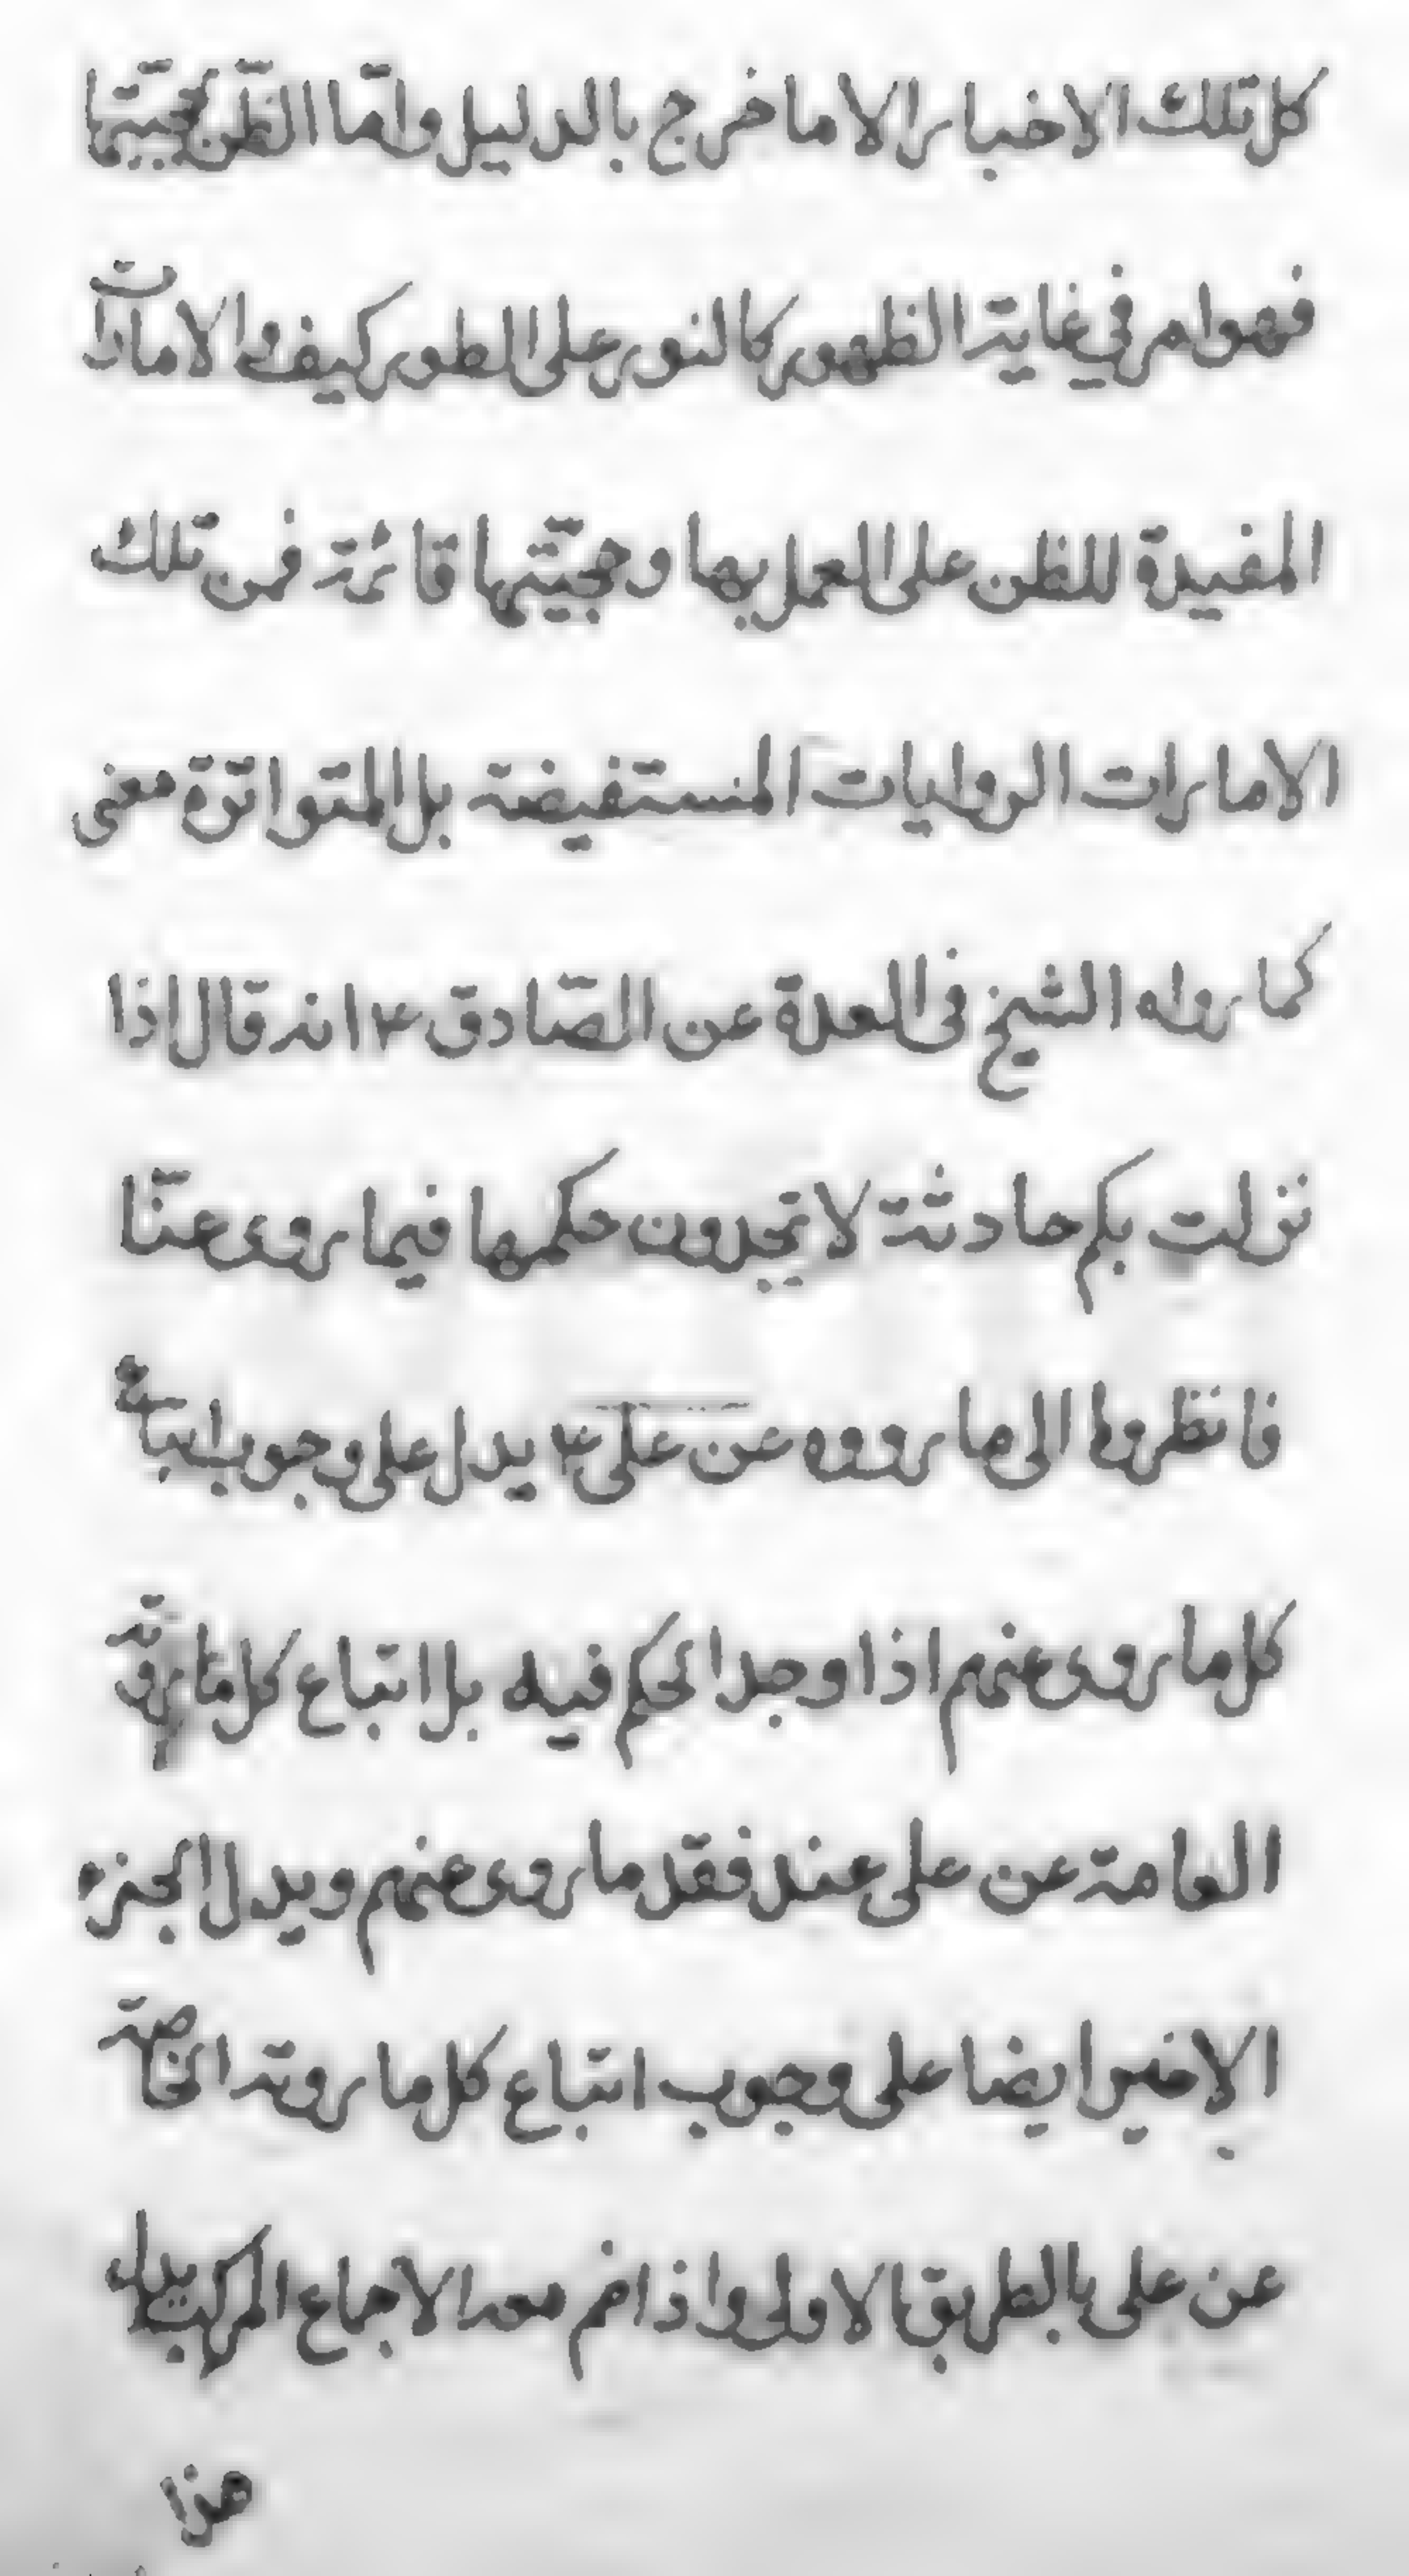 كل تلك الاخبار الا ما خرج بالدليل وامّا الظّن بحجيّتها
فهو امر في غاية الظهور كالنور على الطور كيف والامارات
المفيدة للظن على العمل بها وحجيّتها قائمة فمن تلك
الامارات الروايات المستفيضة بل المتواترة معنى
كما رواه الشيخ فى العدة عن الصّادق ع انه قال اذا
نزلت بكم حادثة لا تجدون حكمها فيما روى عنّا
فانظروا الى ما رووه عن على ع يدل على وجوب اتباع
كل ما روى عنهم اذا وجد الحكم فيه بل اتباع كل ما روته
العامة عن على عند فقد ما روى عنهم ويدل الجزء
الاخير ايضا على وجوب اتباع كل ما روته الخاصة
عن على بالطريق الاولى واذا ضم معه الاجماع المركب يدل
هذا